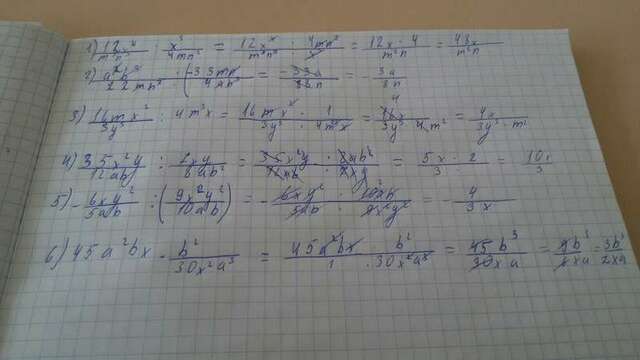 1) 12x⁴/m²n³ : x³/4mn² = 12x⁴/m²n³ · 4mn²/x³ = 12x · 4/m²n = 48x/m²n
2) a²b³/22mn² : (-33mn/4ab²) = -33a/88n = -3a/8n
3) 16mx²/3y³ : 4m³x = 16mx²/3y³ · 1/4m³x = 16x/3y³ · 4m² = 4x/3y³ · m²
4) 35x²y/12ab : 7xy/8ab² = 35x²y/12ab · 8ab²/7xy = 5x · 2/3 = 10x/3
5) -6xy²/5ab : (9x²y²/10ab) = -6xy²/5ab · 10ab/9x²y² = -4/3x
6) 45a²bx · b²/30x²a³ = 45a²bx/1 · b²/30x²a³ = 45b³/30xa = 9b³/xa = 3b³/2xa